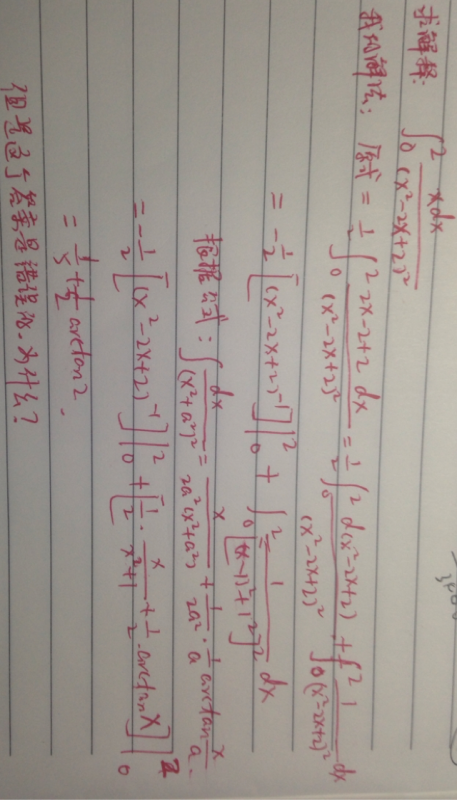 求解释: ∫₀² xdx/(x²-2x+2)²
我的解法: 原式 = 1/2 ∫₀² (2x-2+2)/(x²-2x+2)² dx = 1/2 ∫₀² d(x²-2x+2)/(x²-2x+2)² + ∫₀² 1/(x²-2x+2)² dx
= -1/2 [(x²-2x+2)⁻¹]|₀² + ∫₀² 1/[(x-1)²+1²]² dx
根据公式: ∫ dx/(x²+a²)² = x/(2a²(x²+a²)) + 1/(2a²) · 1/a arctan x/a.
= -1/2 [(x²-2x+2)⁻¹]|₀² + [1/2 · x/(x²+1) + 1/2 · arctan x]|₀²
= 1/5 + 1/2 arctan2.
但是这个答案是错误的. 为什么?